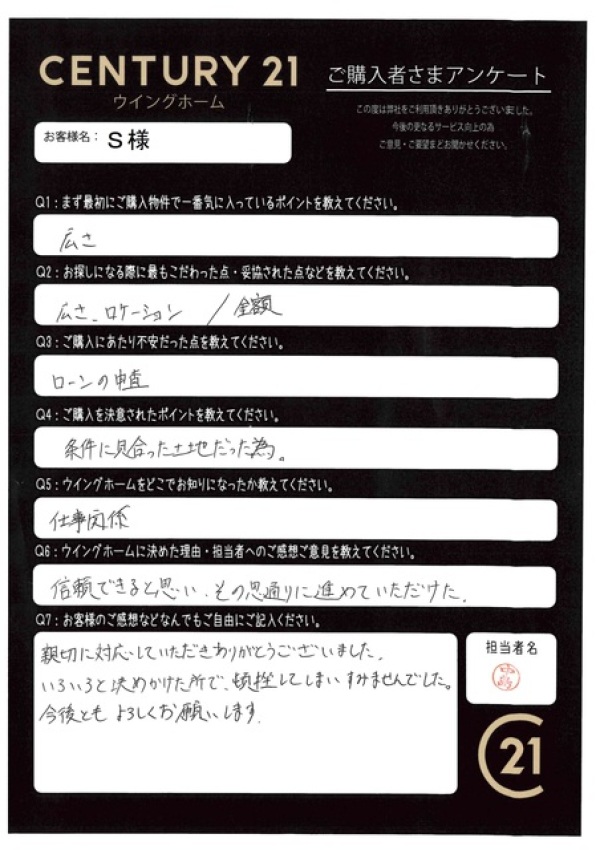 CENTURY 21
ウイングホーム
ご購入者さまアンケート
この度は弊社をご利用頂きありがとうございました。
今後の更なるサービス向上の為
ご意見・ご要望まどお聞かせください。
お客様名： S様
Q1：まず最初にご購入物件で一番気に入っているポイントを教えてください。
広さ
Q2：お探しになる際に最もこだわった点・妥協された点などを教えてください。
広さ、ロケーション / 金額
Q3：ご購入にあたり不安だった点を教えてください。
ローンの審査
Q4：ご購入を決意されたポイントを教えてください。
条件に見合った土地だった為。
Q5：ウイングホームをどこでお知りになったか教えてください。
仕事関係
Q6：ウイングホームに決めた理由・担当者へのご感想ご意見を教えてください。
信頼できると思い、その思通りに進めていただけた。
Q7：お客様のご感想などなんでもご自由にご記入ください。
親切に対応していただきありがとうございました。
いろいろと決めかけた所で、頓挫してしまいすみませんでした。
今後とも よろしくお願いします。
担当者名
21